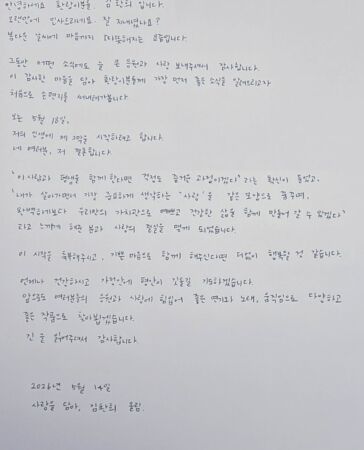 안녕하세요 환람이분들. 김환희 입니다.
오랜만에 인사드리네요. 잘 지내셨나요?
봄다운 날씨에 마음까지 따뜻해지는 요즘입니다.
그동안 어떤 소식에도 늘 큰 응원과 사랑 보내주셔서 감사합니다.
이 감사한 마음을 담아 환람이분들께 가장 먼저 좋은 소식을 알려드리고자
처음으로 손편지를 써내려가봅니다.
오는 5월 18일,
저의 인생에 제 2막을 시작하려고 합니다.
네 여러분, 저 결혼합니다.
'이 사람과 평생을 함께 한다면 걱정도 즐거운 과정이겠다' 라는 확신이 들었고,
'내가 살아가면서 가장 중요하게 생각하는 '사랑'을 같은 모양으로 꿈꾸며,
완벽하기보다 우리만의 가치관으로 예쁘고 건강한 삶을 함께 만들어 갈 수 있겠다'
라고 느끼게 해준 분과 사랑의 결실을 맺게 되었습니다.
이 시작을 축복해주시고, 기쁜 마음으로 함께 해주신다면 더없이 행복할 것 같습니다.
언제나 건강하시고 가정안에 평안이 깃들길 기도하겠습니다.
앞으로도 여러분들의 응원과 사랑에 힘입어 좋은 연기와 노래, 움직임으로 다양하고
좋은 작품으로 찾아뵙겠습니다.
긴 글 읽어주셔서 감사합니다.
2026년 5월 14일
사랑을 담아, 김환희 올림.